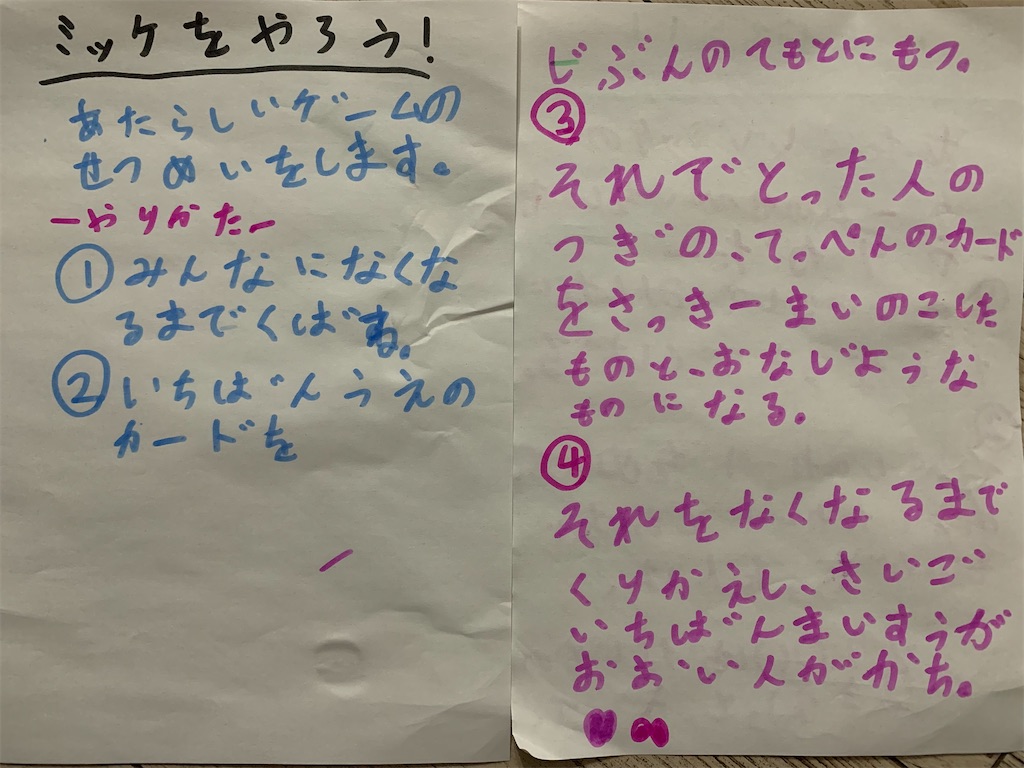 ミッケをやろう!
あたらしいゲームの
せつめいをします。
ーやりかたー
①みんなになくな
るまでくばる。
②いちばんうえの
カードを
じぶんのてもとにもつ。
③
それでとった人の
つぎの、て。ぺんのカード
をさっき一まいのこした
ものと、おなじような
ものになる。
④
それをなくなるまで
くりかえし、さいご
いちばんまいすうが
おおい人がかち。